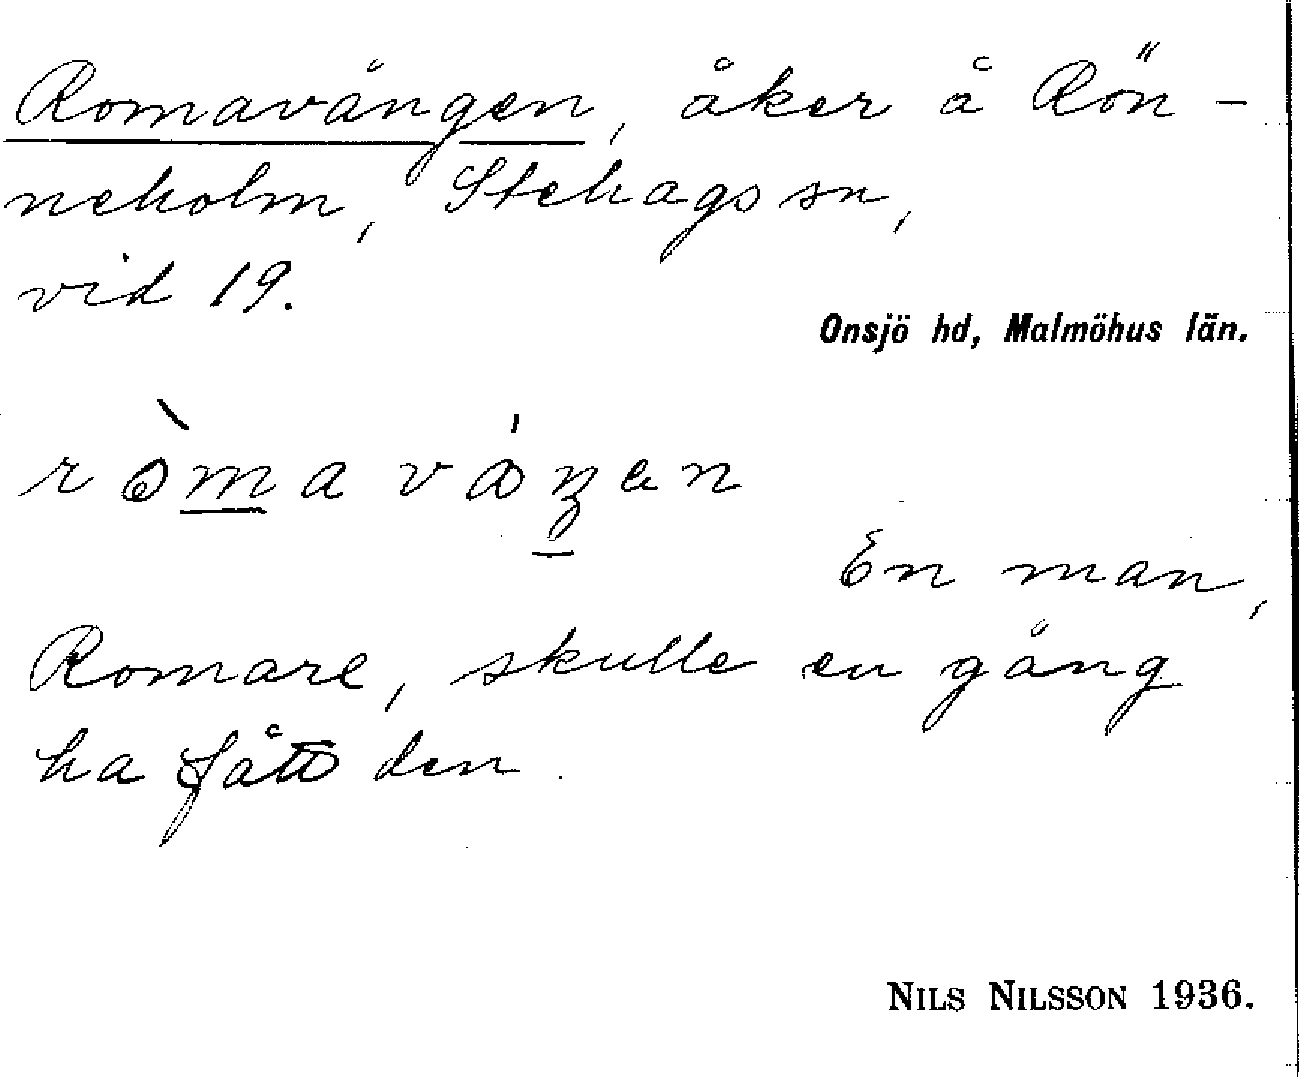 Romavången, åker å Rön-
neholm, Stehags sn,
vid 19.
Onsjö hd, Malmöhus län.
ròmaváŋen
En man,
Romare, skulle en gång
ha fått den.
NILS NILSSON 1936.